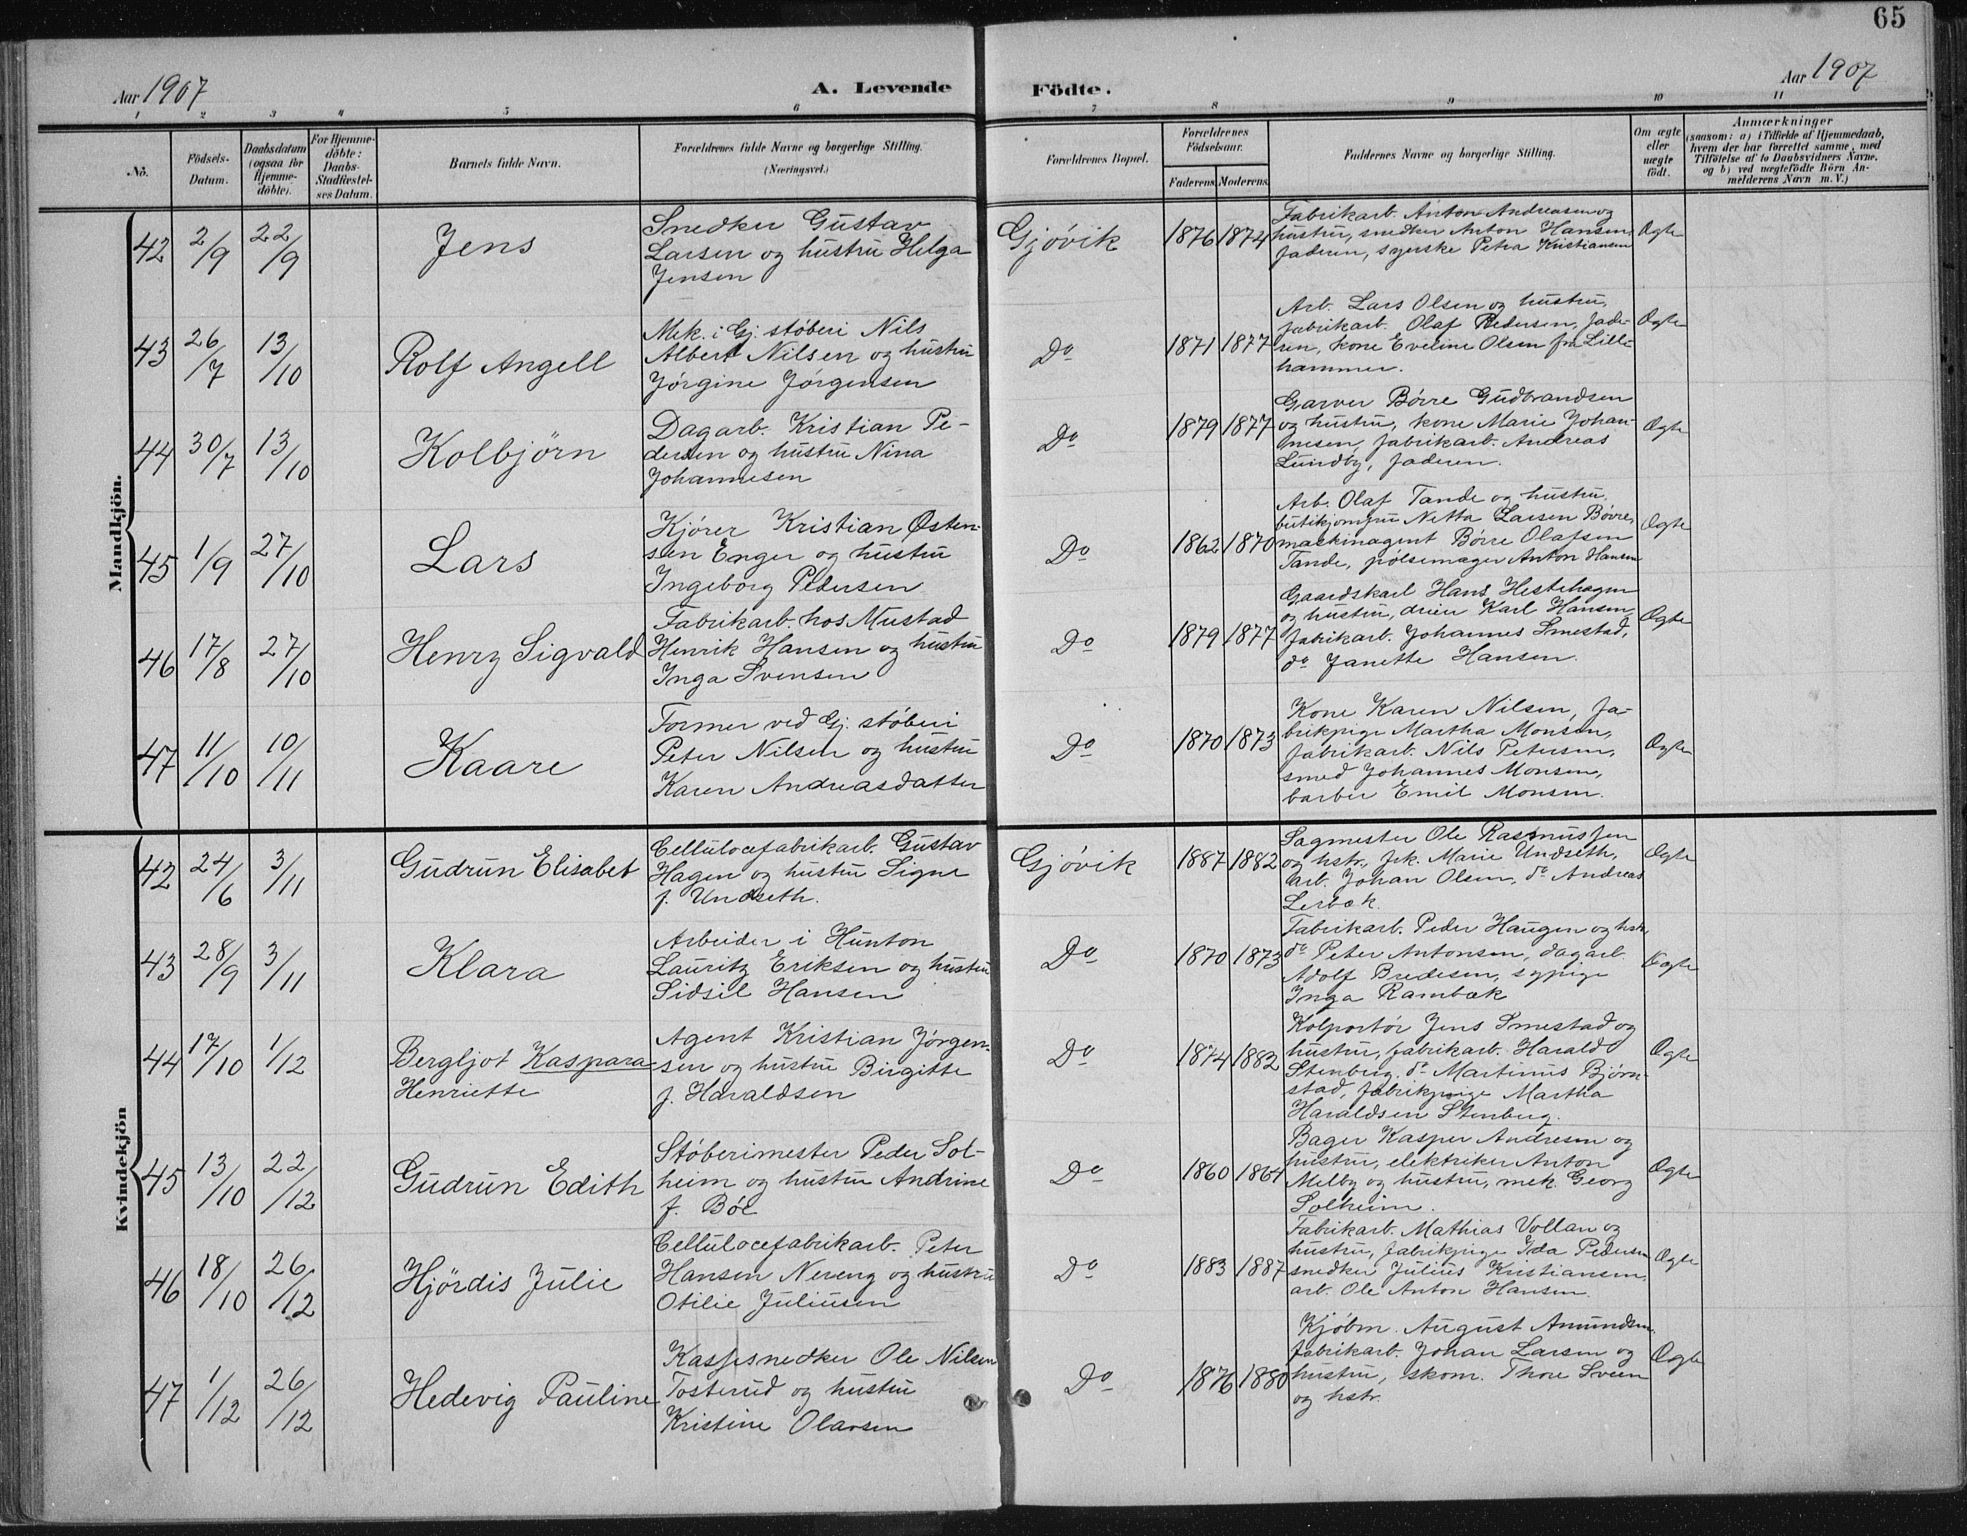 65
Aar 1907
A. Levende
Födte.
Aar 1907
1 2 3 4 5 6 7 8 9 10 11
No.
Födsels-
Datum.
Daabsdatum
(ogsaa for
Hjemme-
döbte).
For Hjemme-
döbte:
Daabs-
Stadfæstel-
ses Datum.
Barnets fulde Navn.
Forældrenes fulde Navne og borgerlige Stilling.
(Næringsvei.)
Forældrenes Bopæl.
Forældrenes
Födselsaar.
Faderens. Moderens.
Faddernes Navne og borgerlige Stilling.
Om ægte
eller
uægte
födt.
Anmærkninger
(saasom: a) i Tilfælde af Hjemmedaab,
hvem der har forrettet samme, med
Tilföielse af to Daabsvidners Navne,
og b) ved uægtefödte Börn An-
melderens Navn m. V.)
Mandkjön.
42 2/9 22/9 Jens
Snedker Gustav
Larsen og hustru Helga
Jensen
Gjøvik 1876 1874
Fabrikarb. Anton Andreasen og
hustru, snedker Anton Hansen,
faderen, syerske Petra Kristiansen
Ægte
43 26/7 13/10 Rolf Angell
Mek. i Gj. støberi Nils
Albert Nilsen og hustru
Jørgine Jørgensen
Do 1871 1877
Arb. Lars Olsen og hustru,
fabrikarb. Olaf Pedersen, fade-
ren, kone Eveline Olsen fra Lille-
hammer.
Ægte
44 30/7 13/10 Kolbjörn
Dagarb. Kristian Pe-
dersen og hustru Nina
Johannesen
Do 1879 1877
Garver Børre Gudbrandsen
og hustru, kone Marie Johan-
nesen, fabrikarb. Andreas
Lundby, faderen.
Ægte
45 1/9 27/10 Lars
Kjører Kristian Østen-
sen Enger og hustru
Ingeborg Pedersen
Do 1862 1870
Arb. Olaf Tande og hustru,
butikjomfru Netta Larsen Børre,
maskinagent Børre Olafsen
Tande, pølsemager Anton Hansen
Ægte
46 17/8 27/10 Henry Sigvald
Fabrikarb. hos Mustad
Henrik Hansen og hustru
Inga Svensen
Do 1879 1877
Gaardskarl Hans Hestehagen
og hustru, dreier Karl Hansen,
fabrikarb. Johannes Smestad,
do Janette Hansen.
Ægte
47 11/10 10/11 Kaare
Former ved Gj. støberi
Peter Nilsen og hustru
Karen Andreasdatter
Do 1870 1873
Kone Karen Nilsen, fa-
brikpige Martha Monsen,
fabrikarb. Nils Petersen,
smed Johannes Monsen,
barber Emil Monsen.
Ægte
Kvindekjön
42 24/6 3/11 Gudrun Elisabet
Cellulocefabrikarb. Gustav
Hagen og hustru Signe
f. Undseth.
Gjøvik 1887 1882
Sagmester Ole Rasmussen
og hstr., frk. Marie Undseth,
arb. Johan Olsen, do Andreas
Lerbæk.
Ægte
43 28/9 3/11 Klara
Arbeider i Hunton
Lauritz Eriksen og hustru
Sidsil Hansen
Do 1870 1873
Fabrikarb. Peder Haugen og hstr,
do Peter Antonsen, dagarb.
Adolf Bredesen, sypige
Inga Rambæk
Ægte
44 17/10 1/12 Bergljot Kaspara
Henriette
Agent Kristian Jørgen-
sen og hustru Birgitte
f. Haraldsen
Do 1874 1882
Kolportør Jens Smestad og
hustru, fabrikarb. Harald
Stenberg, do Martinus Bjørn-
stad, fabrikpige Martha
Haraldsen Stenberg.
Ægte
45 13/10 22/12 Gudrun Edith
Støberimester Peder Sol-
heim og hustru Andrine
f. Böe
Do 1860 1864
Bager Kasper Andresen og
hustru, elektriker Anton
Melby og hustru, mek. Georg
Solheim.
Ægte
46 18/10 26/12 Hjördis Julie
Cellulocefabrikarb. Peter
Hansen Nereng og hustru
Otilie Juliusen
Do 1883 1887
Fabrikarb. Mathias Vollan og
hustru, fabrikpige Ida Pedersen
snedker Julius Kristiansen,
arb. Ole Anton Hansen.
Ægte
47 1/12 26/12 Hedevig Pauline
Kassesnedker Ole Nilsen
Tosterud og hustru
Kristine Olavsen
Do 1876 1880
Kjøbm. August Amundsen,
fabrikarb. Johan Larsen og
hustru, skom. Thore Sveen
og hstr.
Ægte